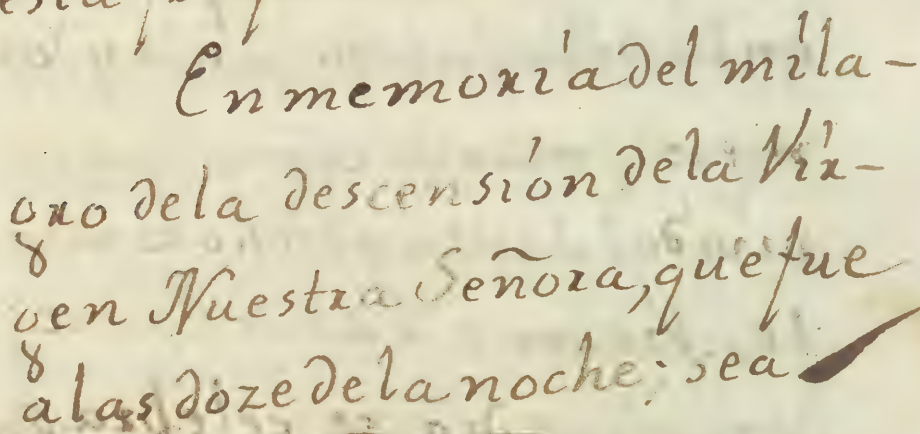 En memoria del mila-
gro de la descension de la Vir-
gen Nuestra Señora, que fue
a las doze de la noche; sea